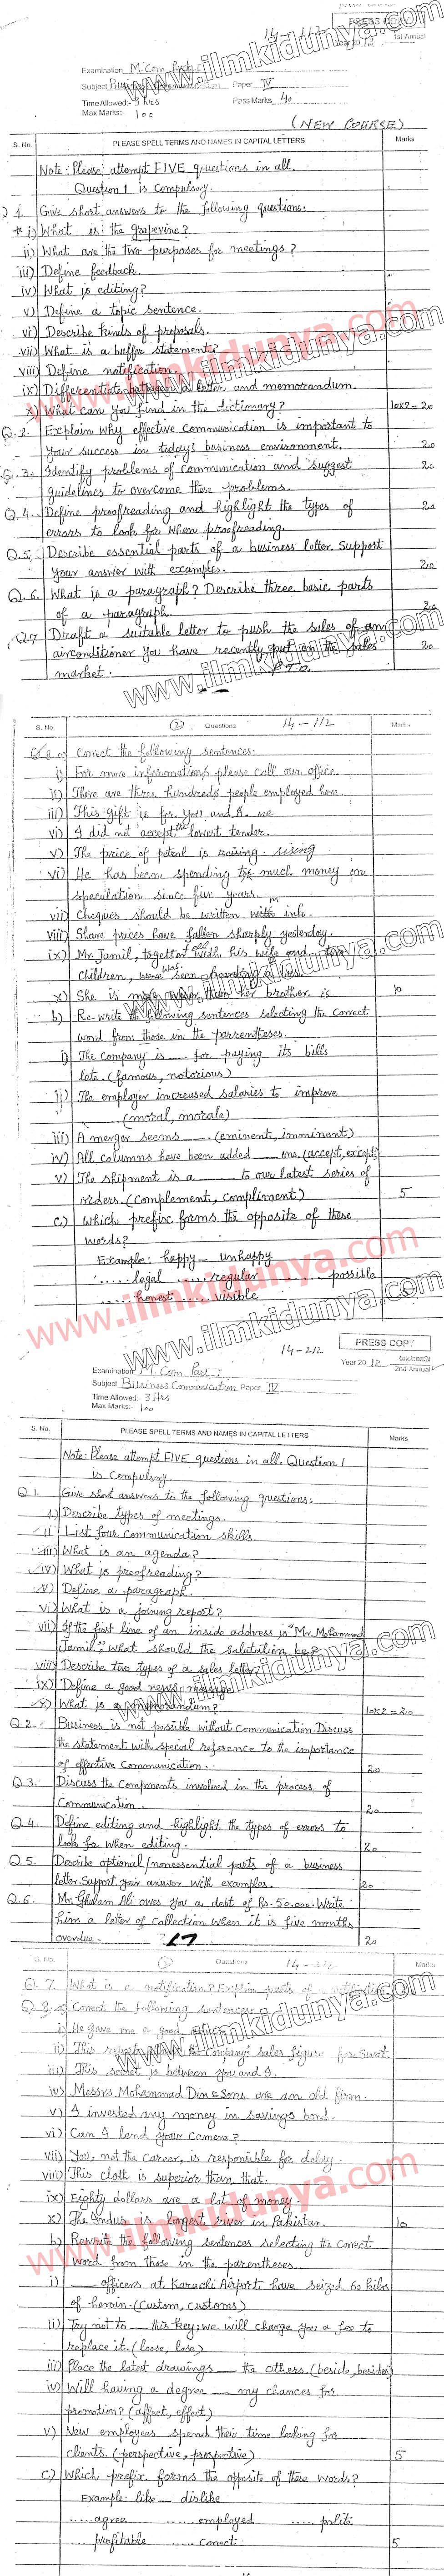 14-112
PRESS COPY
Year 2012 1st Annual
Examination M.Com Part-I
Subject Business Communication Paper IV
Time Allowed:- 3 Hrs Pass Marks 40
Max Marks:- 100
(NEW COURSE)
S. No. PLEASE SPELL TERMS AND NAMES IN CAPITAL LETTERS Marks
Note: Please attempt FIVE questions in all.
Question 1 is Compulsory.
1. Give short answers to the following questions:
i) What is the grapevine?
ii) What are the two purposes for meetings?
iii) Define feedback.
iv) What is editing?
v) Define a topic sentence.
vi) Describe kinds of proposals.
vii) What is a buffer statement?
viii) Define notification.
ix) Differentiate between a letter and memorandum.
x) What can you find in the dictionary? 10x2=20
Q.2. Explain why effective communication is important to
your success in today's business environment. 20
Q.3. Identify problems of communication and suggest 20
guidelines to overcome these problems.
Q.4. Define proofreading and highlight the types of 20
errors to look for when proofreading.
Q.5. Describe essential parts of a business letter. Support
your answer with examples. 20
Q.6. What is a paragraph? Describe three basic parts
of a paragraph. 20
Q7 Draft a suitable letter to push the sales of an 20
airconditioner you have recently put on the sales
market. P.T.O.
S. No. (2) Questions 14-112 Marks
Q.8.a) Correct the following sentences:
i) For more informations please call our office.
ii) There are three hundreds people employed here.
iii) This gift is for you and I. me
vi) I did not accept the lowest tender.
v) The price of petrol is raising. rising
vi) He has been spending too much money on
speculation since five years.
vii) Cheques should be written with ink.
viii) Share prices have fallen sharply yesterday.
ix) Mr. Jamil, together with his wife and
children, were seen boarding a bus.
x) She is more than her brother. is 10
b) Re-write the following sentences selecting the correct
word from those in the parrentheses.
i) The company is ___ for paying its bills
late. (famous, notorious)
ii) The employer increased salaries to improve
___ (moral, morale)
iii) A merger seems ___. (eminent, imminent)
iv) All columns have been added ___ one. (accept, except)
v) The shipment is a ___ to our latest series of
orders. (complement, compliment) 5
c) Which prefix forms the opposite of these
words?
Example: happy - unhappy
..... legal ..... regular ..... possible
..... honest ..... visible 5
14-212
PRESS COPY
Year 2012 2nd Annual
Examination M.Com Part-I
Subject Business Communication Paper IV
Time Allowed:- 3 Hrs
Max Marks:- 100
S. No. PLEASE SPELL TERMS AND NAMES IN CAPITAL LETTERS Marks
Note: Please attempt FIVE questions in all. Question 1
is Compulsory.
Q 1. Give short answers to the following questions:
i) Describe types of meetings.
ii List four communication skills.
iii) What is an agenda?
iv) What is proofreading?
v) Define a paragraph.
vi) What is a joining report?
vii) If the first line of an inside address is "Mr. Mohammad
Jamil," what should the salutation be?
viii) Describe two types of a sales letter.
ix) Define a good news message.
x) What is a memorandum? 10x2=20
Q.2. Business is not possible without communication. Discuss
the statement with special reference to the importance
of effective communication. 20
Q.3. Discuss the components involved in the process of
Communication. 20
Q.4. Define editing and highlight the types of errors to
look for when editing. 20
Q.5. Describe optional/nonessential parts of a business
letter. Support your answer with examples. 20
Q.6. Mr. Ghulam Ali owes you a debt of Rs. 50,000. Write
him a letter of Collection when it is five months
overdue. 20
S. No. Questions Marks
Q. 7. What is a notification? Explain parts of a notification.
Q. 8. a) Correct the following sentences:
i) He gave me a good
ii) This company's sales figure for Swat.
iii) This secret is between you and I.
iv) Messrs Mohammad Din & Sons are an old firm.
v) I invested my money in savings bond.
vi) Can I lend your camera?
vii) You, not the career, is responsible for delay.
viii) This cloth is superior them that.
ix) Eighty dollars are a lot of money.
x) The Indus is largest river in Pakistan. 10
b) Rewrite the following sentences selecting the correct
word from those in the parentheses.
i) ___ officers at Karachi Airport have seized 60 kilos
of heroin. (custom, customs)
ii) Try not to ___ this key; we will charge you a fee to
replace it. (loose, lose)
iii) Place the latest drawings ___ the others. (beside, besides)
iv) Will having a degree ___ my chances for
promotion? (affect, effect)
v) New employees spend their time looking for ___
clients. (perspective, prospective) 5
c) Which prefix forms the opposite of these words?
Example: like - dislike
..... agree ..... employed ..... polite
..... profitable ..... correct 5
www.ilmkidunya.com